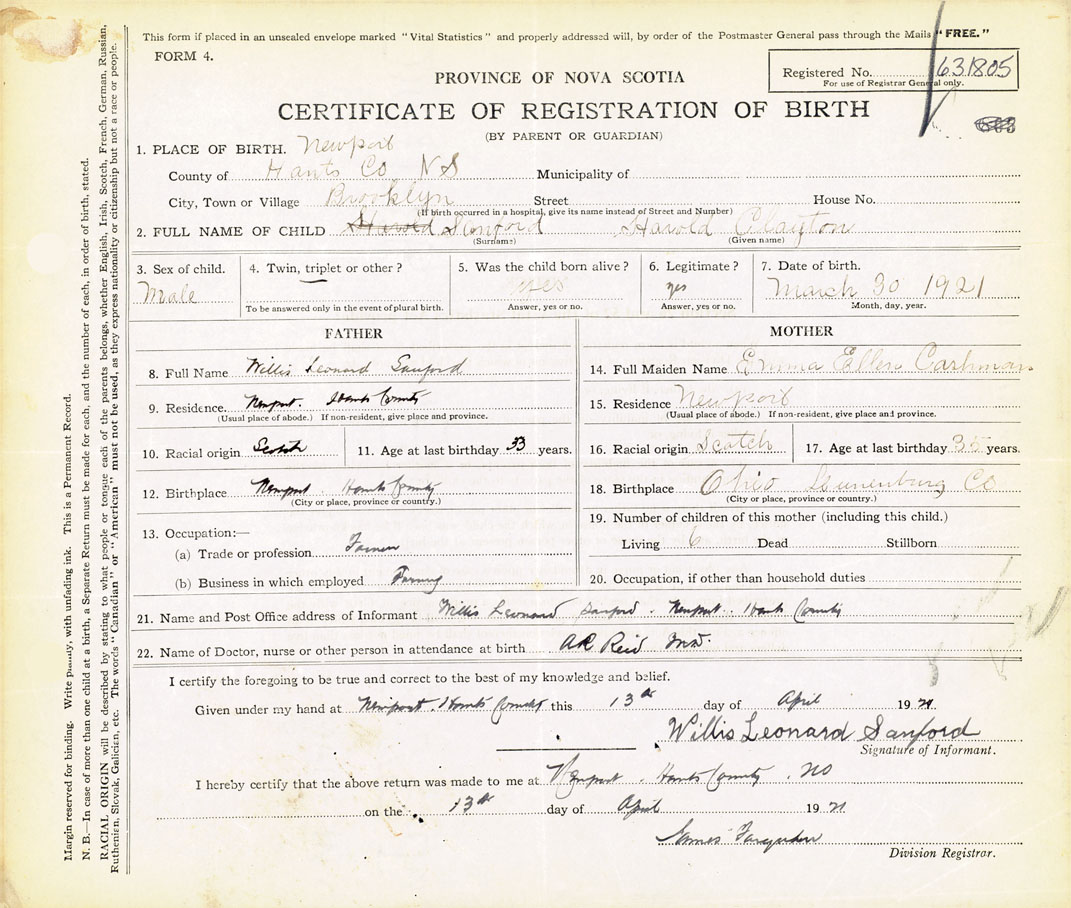 This form if placed in an unsealed envelope marked "Vital Statistics" and properly addressed will, by order of the Postmaster General pass through the Mails "FREE."
FORM 4.
Registered No. 631805
For use of Registrar General only.
PROVINCE OF NOVA SCOTIA
CERTIFICATE OF REGISTRATION OF BIRTH
(BY PARENT OR GUARDIAN)
1. PLACE OF BIRTH. Newport
County of Hants Co NS Municipality of
City, Town or Village Brooklyn Street House No.
(If birth occurred in a hospital, give its name instead of Street and Number)
2. FULL NAME OF CHILD Harold Sanford Harold Clayton
(Surname) (Given name)
3. Sex of child. Male
4. Twin, triplet or other? —
To be answered only in the event of plural birth.
5. Was the child born alive? yes
Answer, yes or no.
6. Legitimate? yes
Answer, yes or no.
7. Date of birth. March 30 1921
Month, day, year.
FATHER
8. Full Name Willis Leonard Sanford
9. Residence. Newport. Hants County
(Usual place of abode.) If non-resident, give place and province.
10. Racial origin Scotch 11. Age at last birthday 33 years.
12. Birthplace Newport. Hants County
(City or place, province or country.)
13. Occupation:—
(a) Trade or profession Farmer
(b) Business in which employed Farming
MOTHER
14. Full Maiden Name Emma Ellen Cashman
15. Residence Newport
(Usual place of abode.) If non-resident, give place and province.
16. Racial origin Scotch 17. Age at last birthday 35 years.
18. Birthplace Ohio Lunenburg Co
(City or place, province or country.)
19. Number of children of this mother (including this child.)
Living 6 Dead Stillborn
20. Occupation, if other than household duties
21. Name and Post Office address of Informant Willis Leonard Sanford. Newport. Hants County
22. Name of Doctor, nurse or other person in attendance at birth AR Reid MD.
I certify the foregoing to be true and correct to the best of my knowledge and belief.
Given under my hand at Newport. Hants County this 13th day of April 1921
Willis Leonard Sanford
Signature of Informant.
I hereby certify that the above return was made to me at Newport. Hants County. NS
on the 13th day of April 1921
James Farquhar
Division Registrar.
Margin reserved for binding. Write plainly, with unfading ink. This is a Permanent Record.
N. B.—In case of more than one child at a birth, a Separate Return must be made for each, and the number of each, in order of birth, stated.
RACIAL ORIGIN will be described by stating to what people or tongue each of the parents belongs, whether English, Irish, Scotch, French, German, Russian,
Ruthenian, Slovak, Galician, etc. The words "Canadian" or "American" must not be used, as they express nationality or citizenship but not a race or people.